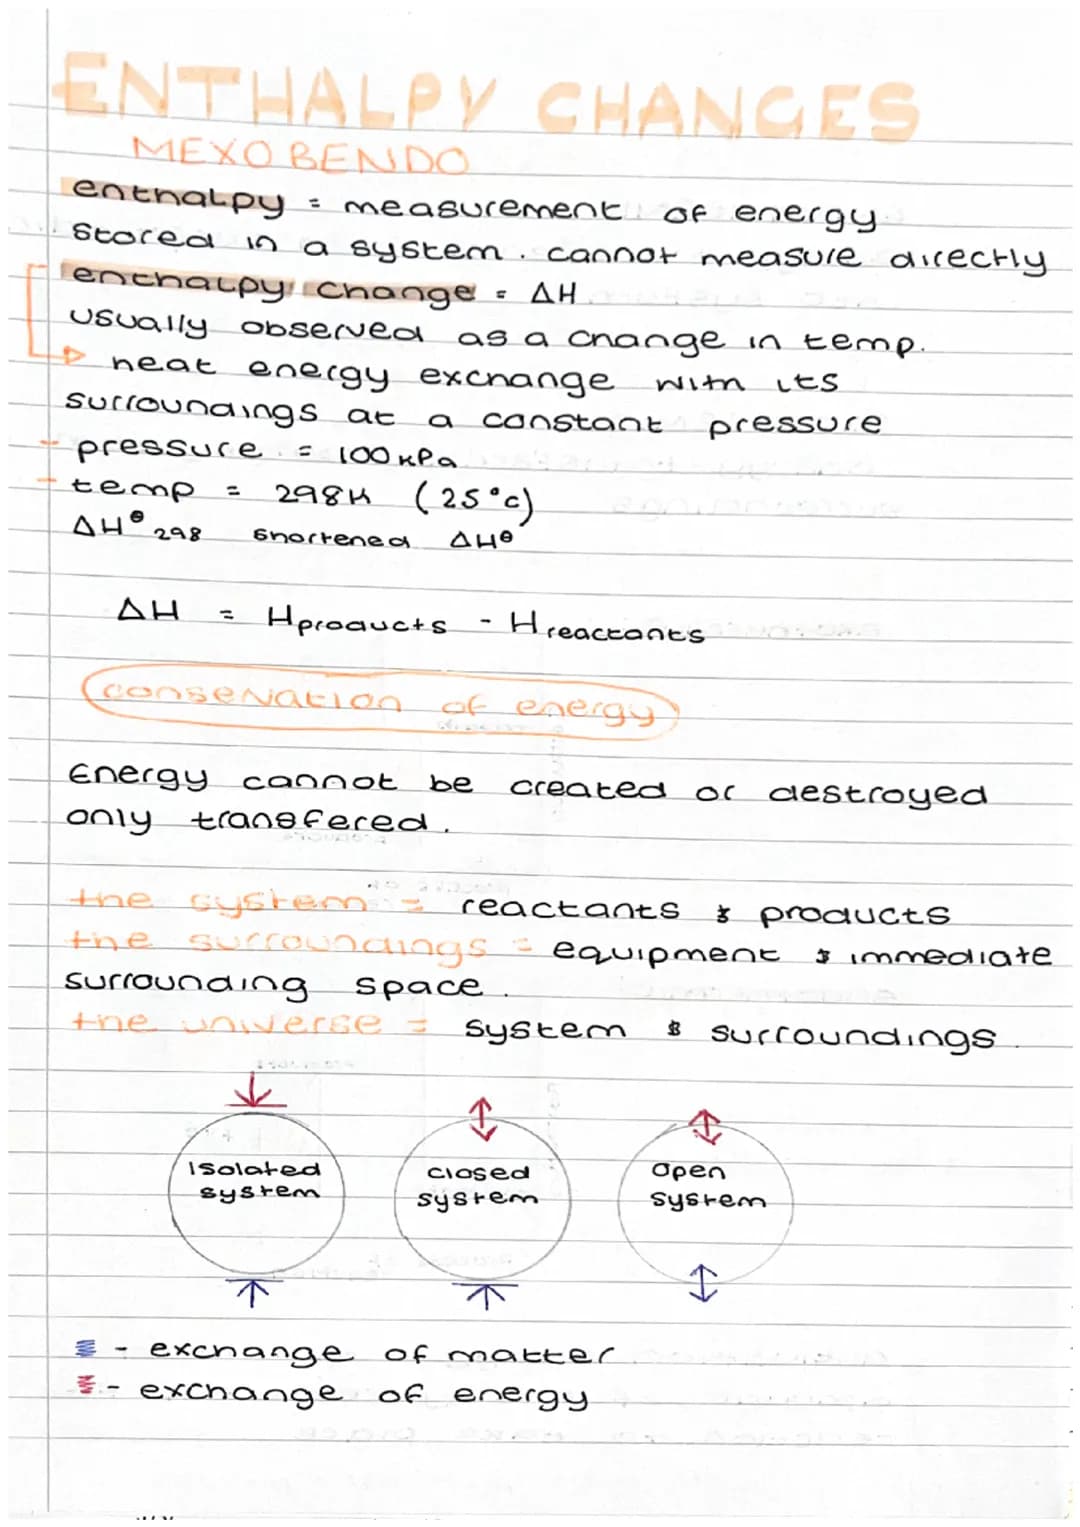 ENTHALPY CHANGES
MEXO BENDO
enthalpy = measurement of energy
stored in a system. cannot measure directly
enthalpy change = ΔH
usually observed as a change in temp.
heat energy exchange with its
surroundings at a constant pressure
- pressure = 100 kPa
- temp = 298K (25°c)
ΔH⦵298 shortened ΔH⦵
ΔH = Hproducts - Hreactants
conservation of energy
Energy cannot be created or destroyed
only transfered.
the system = reactants & products
the surroundings = equipment & immediate
surrounding space.
the universe = system & surroundings.
isolated system
closed system
open system
- exchange of matter
- exchange of energy